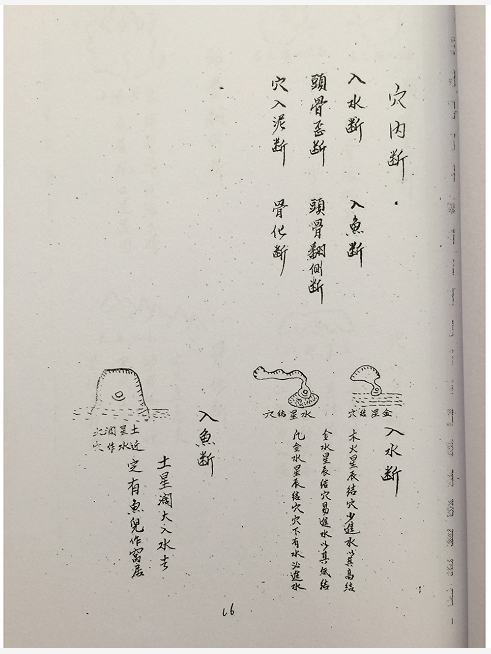 穴內斷
入水斷
入魚斷
頭骨歪斷
頭骨翻側斷
穴入泥斷
骨化斷
金星結穴
水星結穴
入水斷
木火星辰結穴少進水以其高結
金水星辰結穴易進水以其低結
凡金水星辰結穴穴下有水必進水
入魚斷
土星濶大入水去
定有魚兒作窩居
土星濶
近水作穴
16